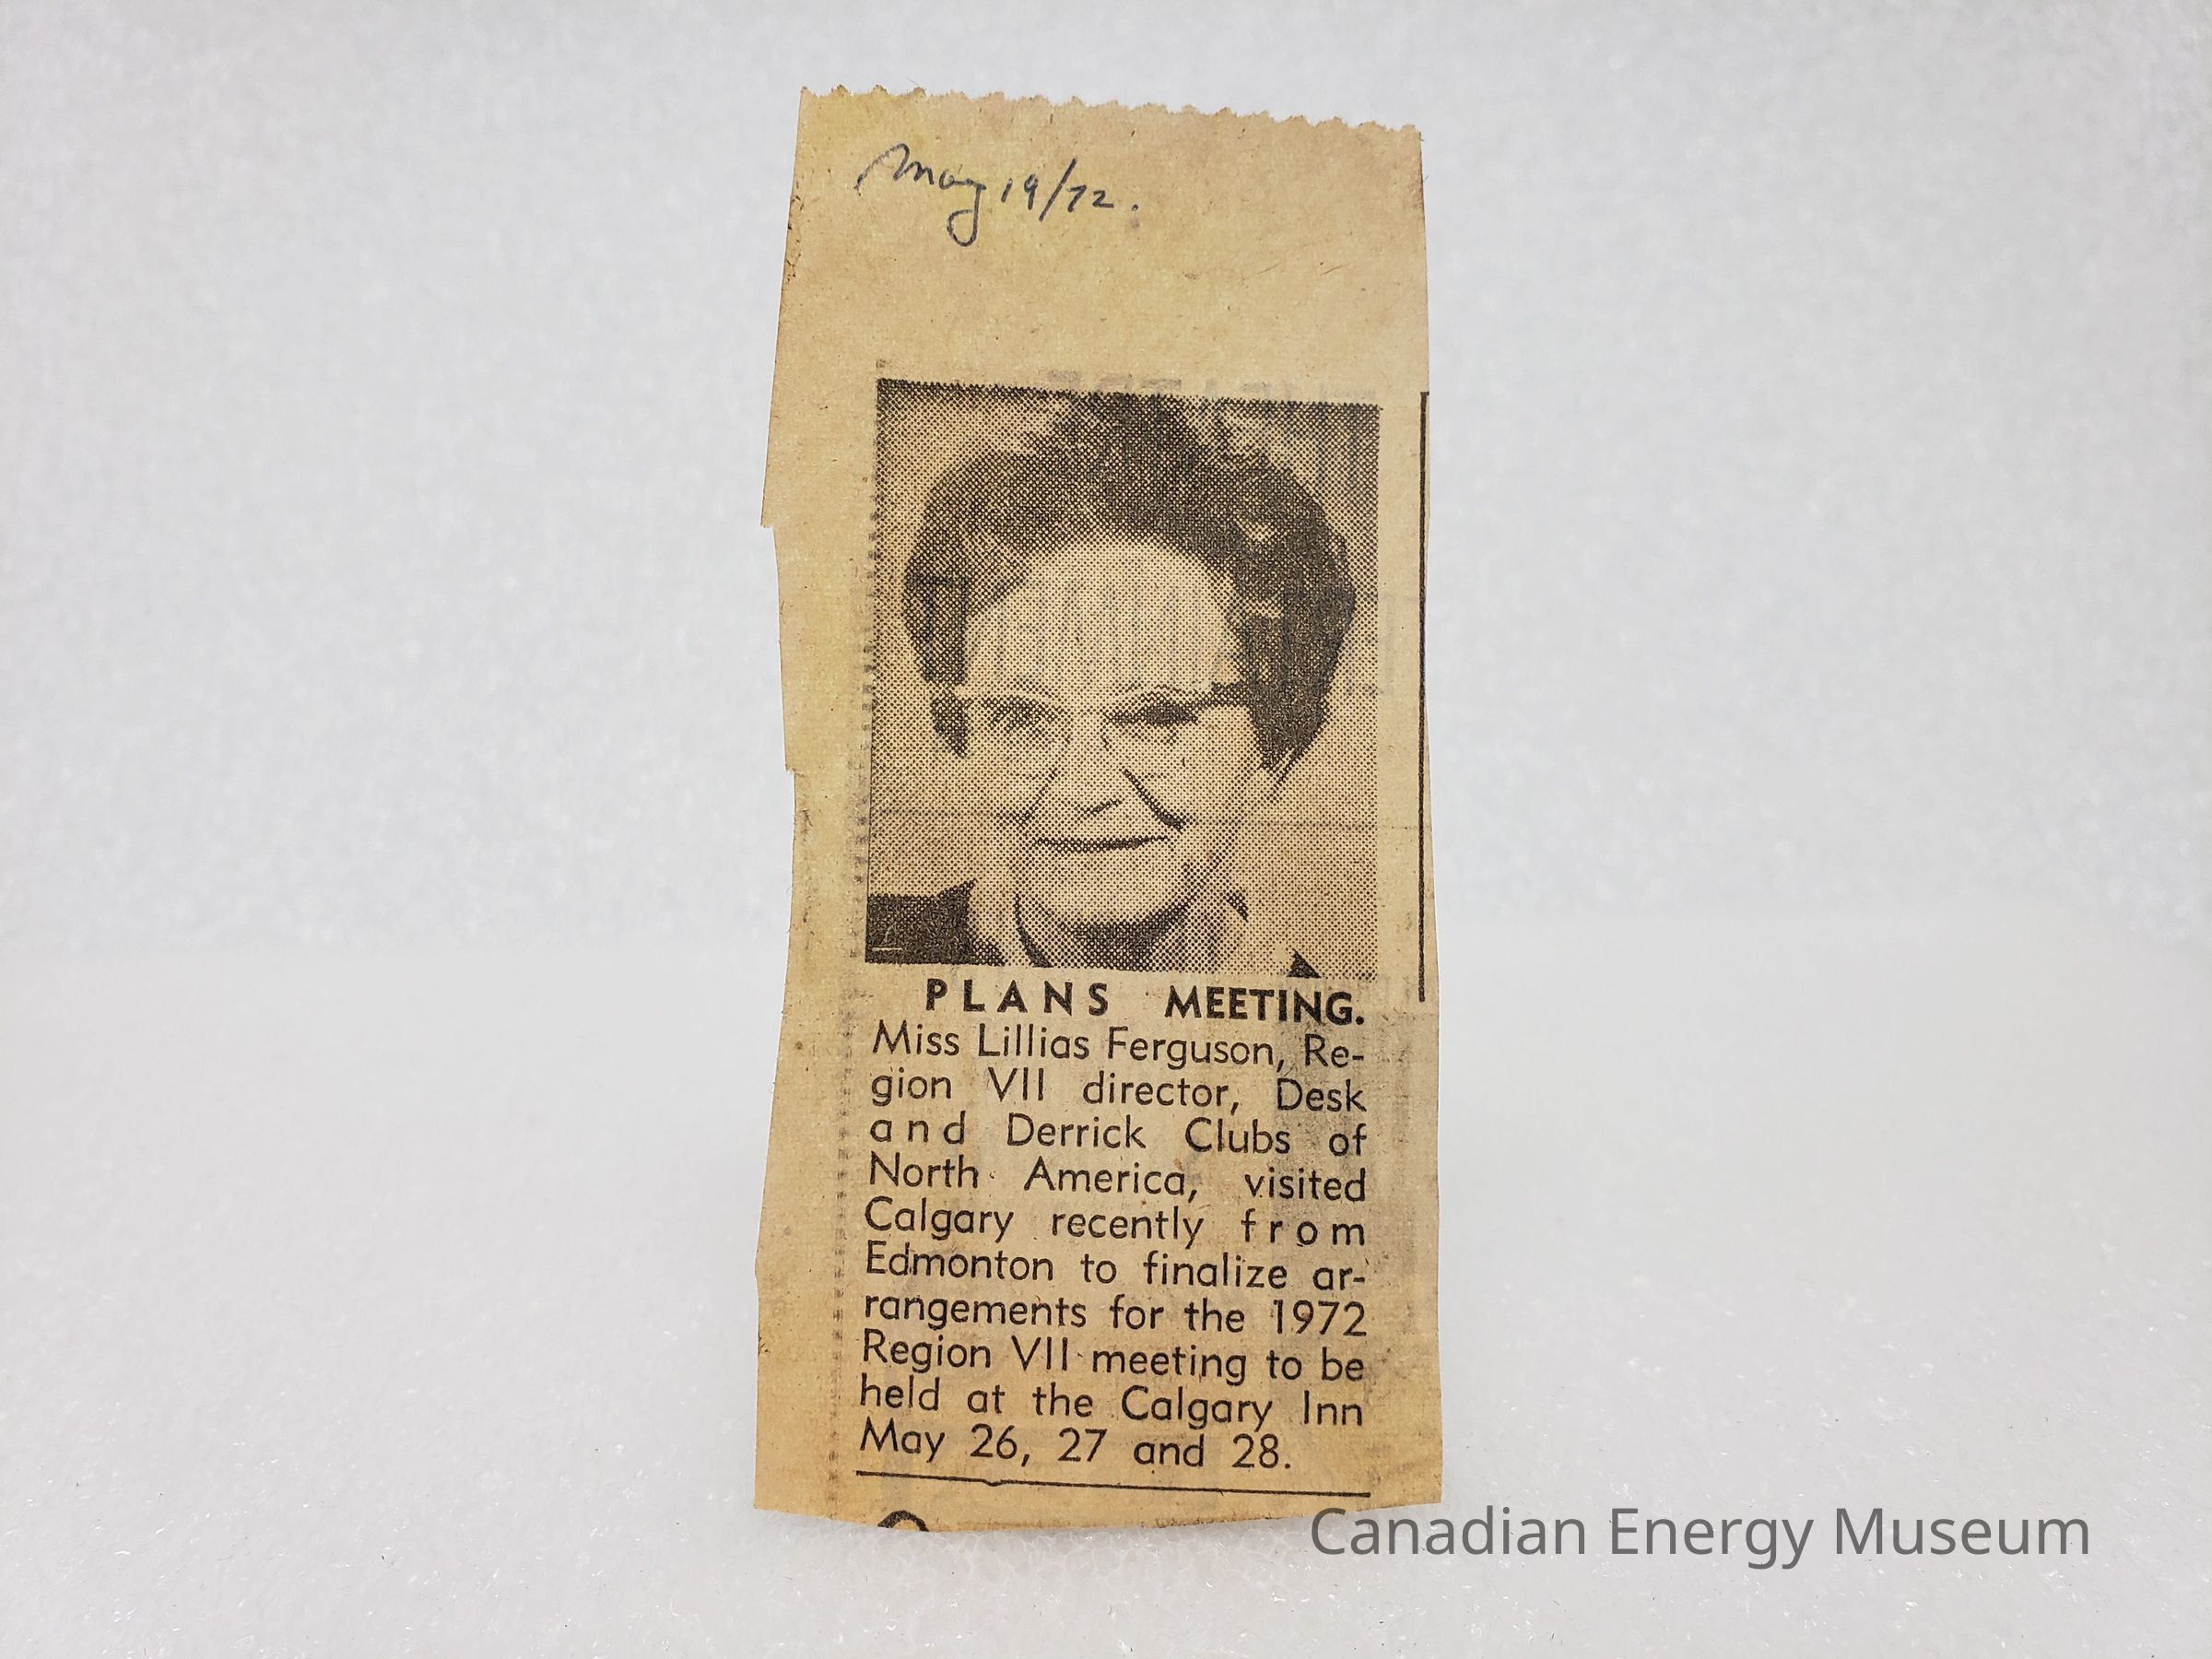 May 19/72.
PLANS MEETING.
Miss Lillias Ferguson, Re-
gion VII director, Desk
and Derrick Clubs of
North America, visited
Calgary recently from
Edmonton to finalize ar-
rangements for the 1972
Region VII meeting to be
held at the Calgary Inn
May 26, 27 and 28.
Canadian Energy Museum